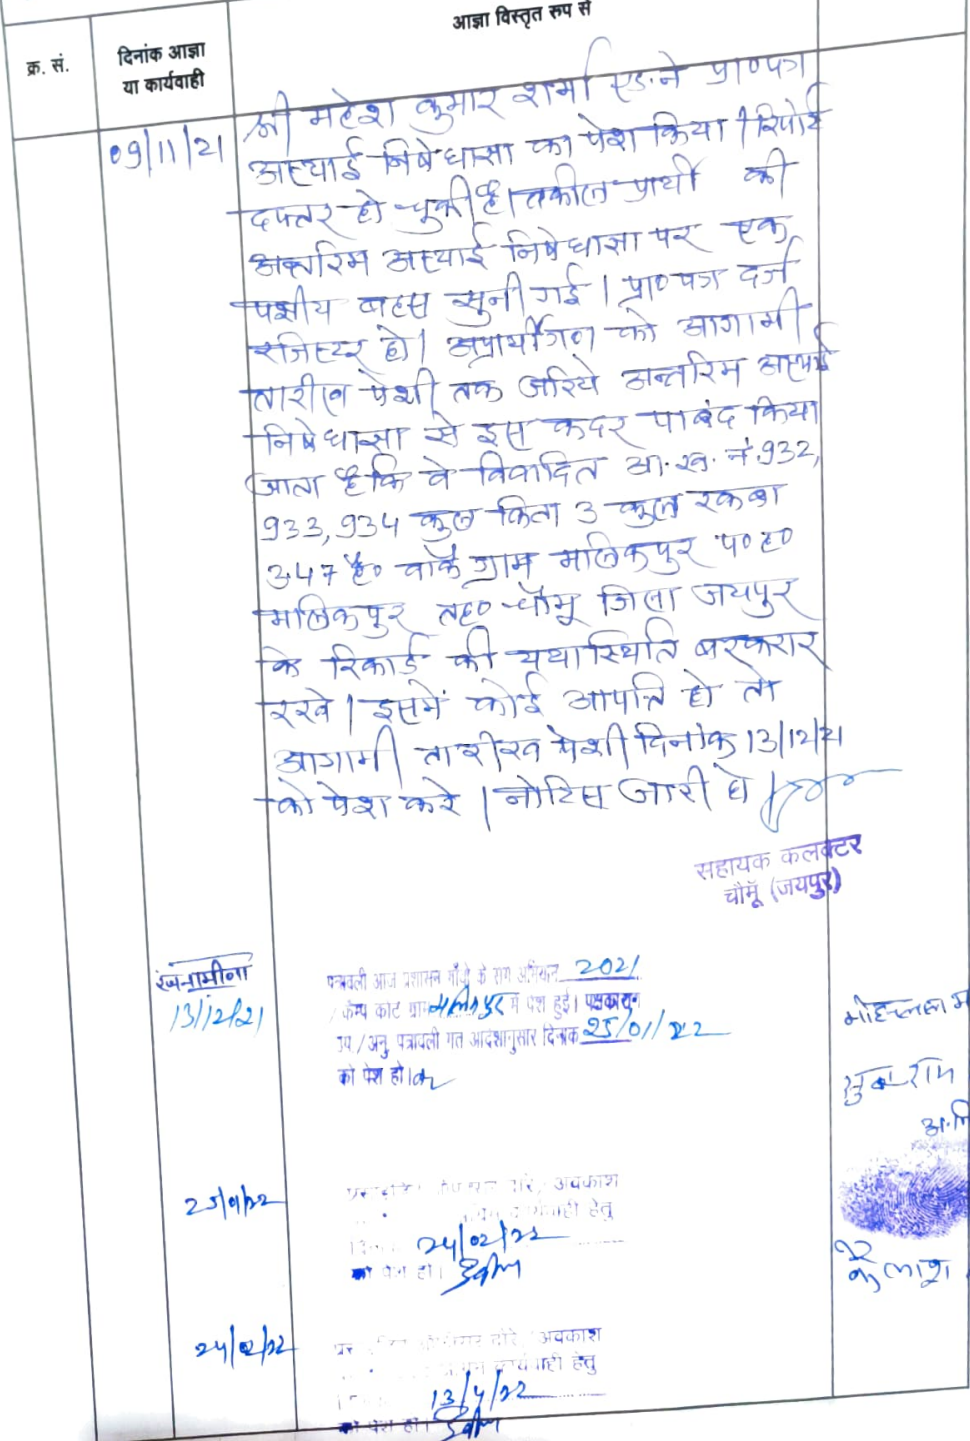 आज्ञा विस्तृत रूप से
क्र. सं.
दिनांक आज्ञा
या कार्यवाही
09/11/21
श्री महेश कुमार शर्मा एड. ने प्रा०पत्र
अस्थाई निषेधाज्ञा का पेश किया। रिपोर्ट
दफ्तर हो चुकी है। वकील प्रार्थी की
अन्तरिम अस्थाई निषेधाज्ञा पर एक
पक्षीय बहस सुनी गई। प्रा० पत्र दर्ज
रजिस्टर हो। अप्रार्थीगण को आगामी
तारीख पेशी तक जरिये अन्तरिम अस्थाई
निषेधाज्ञा से इस कदर पाबंद किया
जाता है कि वे विवादित आ. ख. नं. 932,
933, 934 कुल किता 3 कुल रकबा
3.47 है० वाकै ग्राम मालिकपुर प० ह०
मालिकपुर तह० चौमू जिला जयपुर
के रिकार्ड की यथास्थिति बरकरार
रखे। इसमें कोई आपत्ति हो तो
आगामी तारीख पेशी दिनांक 13/12/21
को पेश करे। नोटिस जारी हो
सहायक कलक्टर
चौमूँ (जयपुर)
13/12/21
पत्रावली आज प्रशासन गाँवो के संग अभियान 2021
केम्प कोट ग्राम मालिकपुर में पेश हुई।
उप / अनु. पत्रावली गत आदेशानुसार दिनांक 25/01/22
को पेश हो।
25/1/22
अवकाश
हेतु
24/02/22
को पेश हो।
24/02/22
अवकाश
कार्यवाही हेतु
13/4/22
को पेश हो।
कैलाश